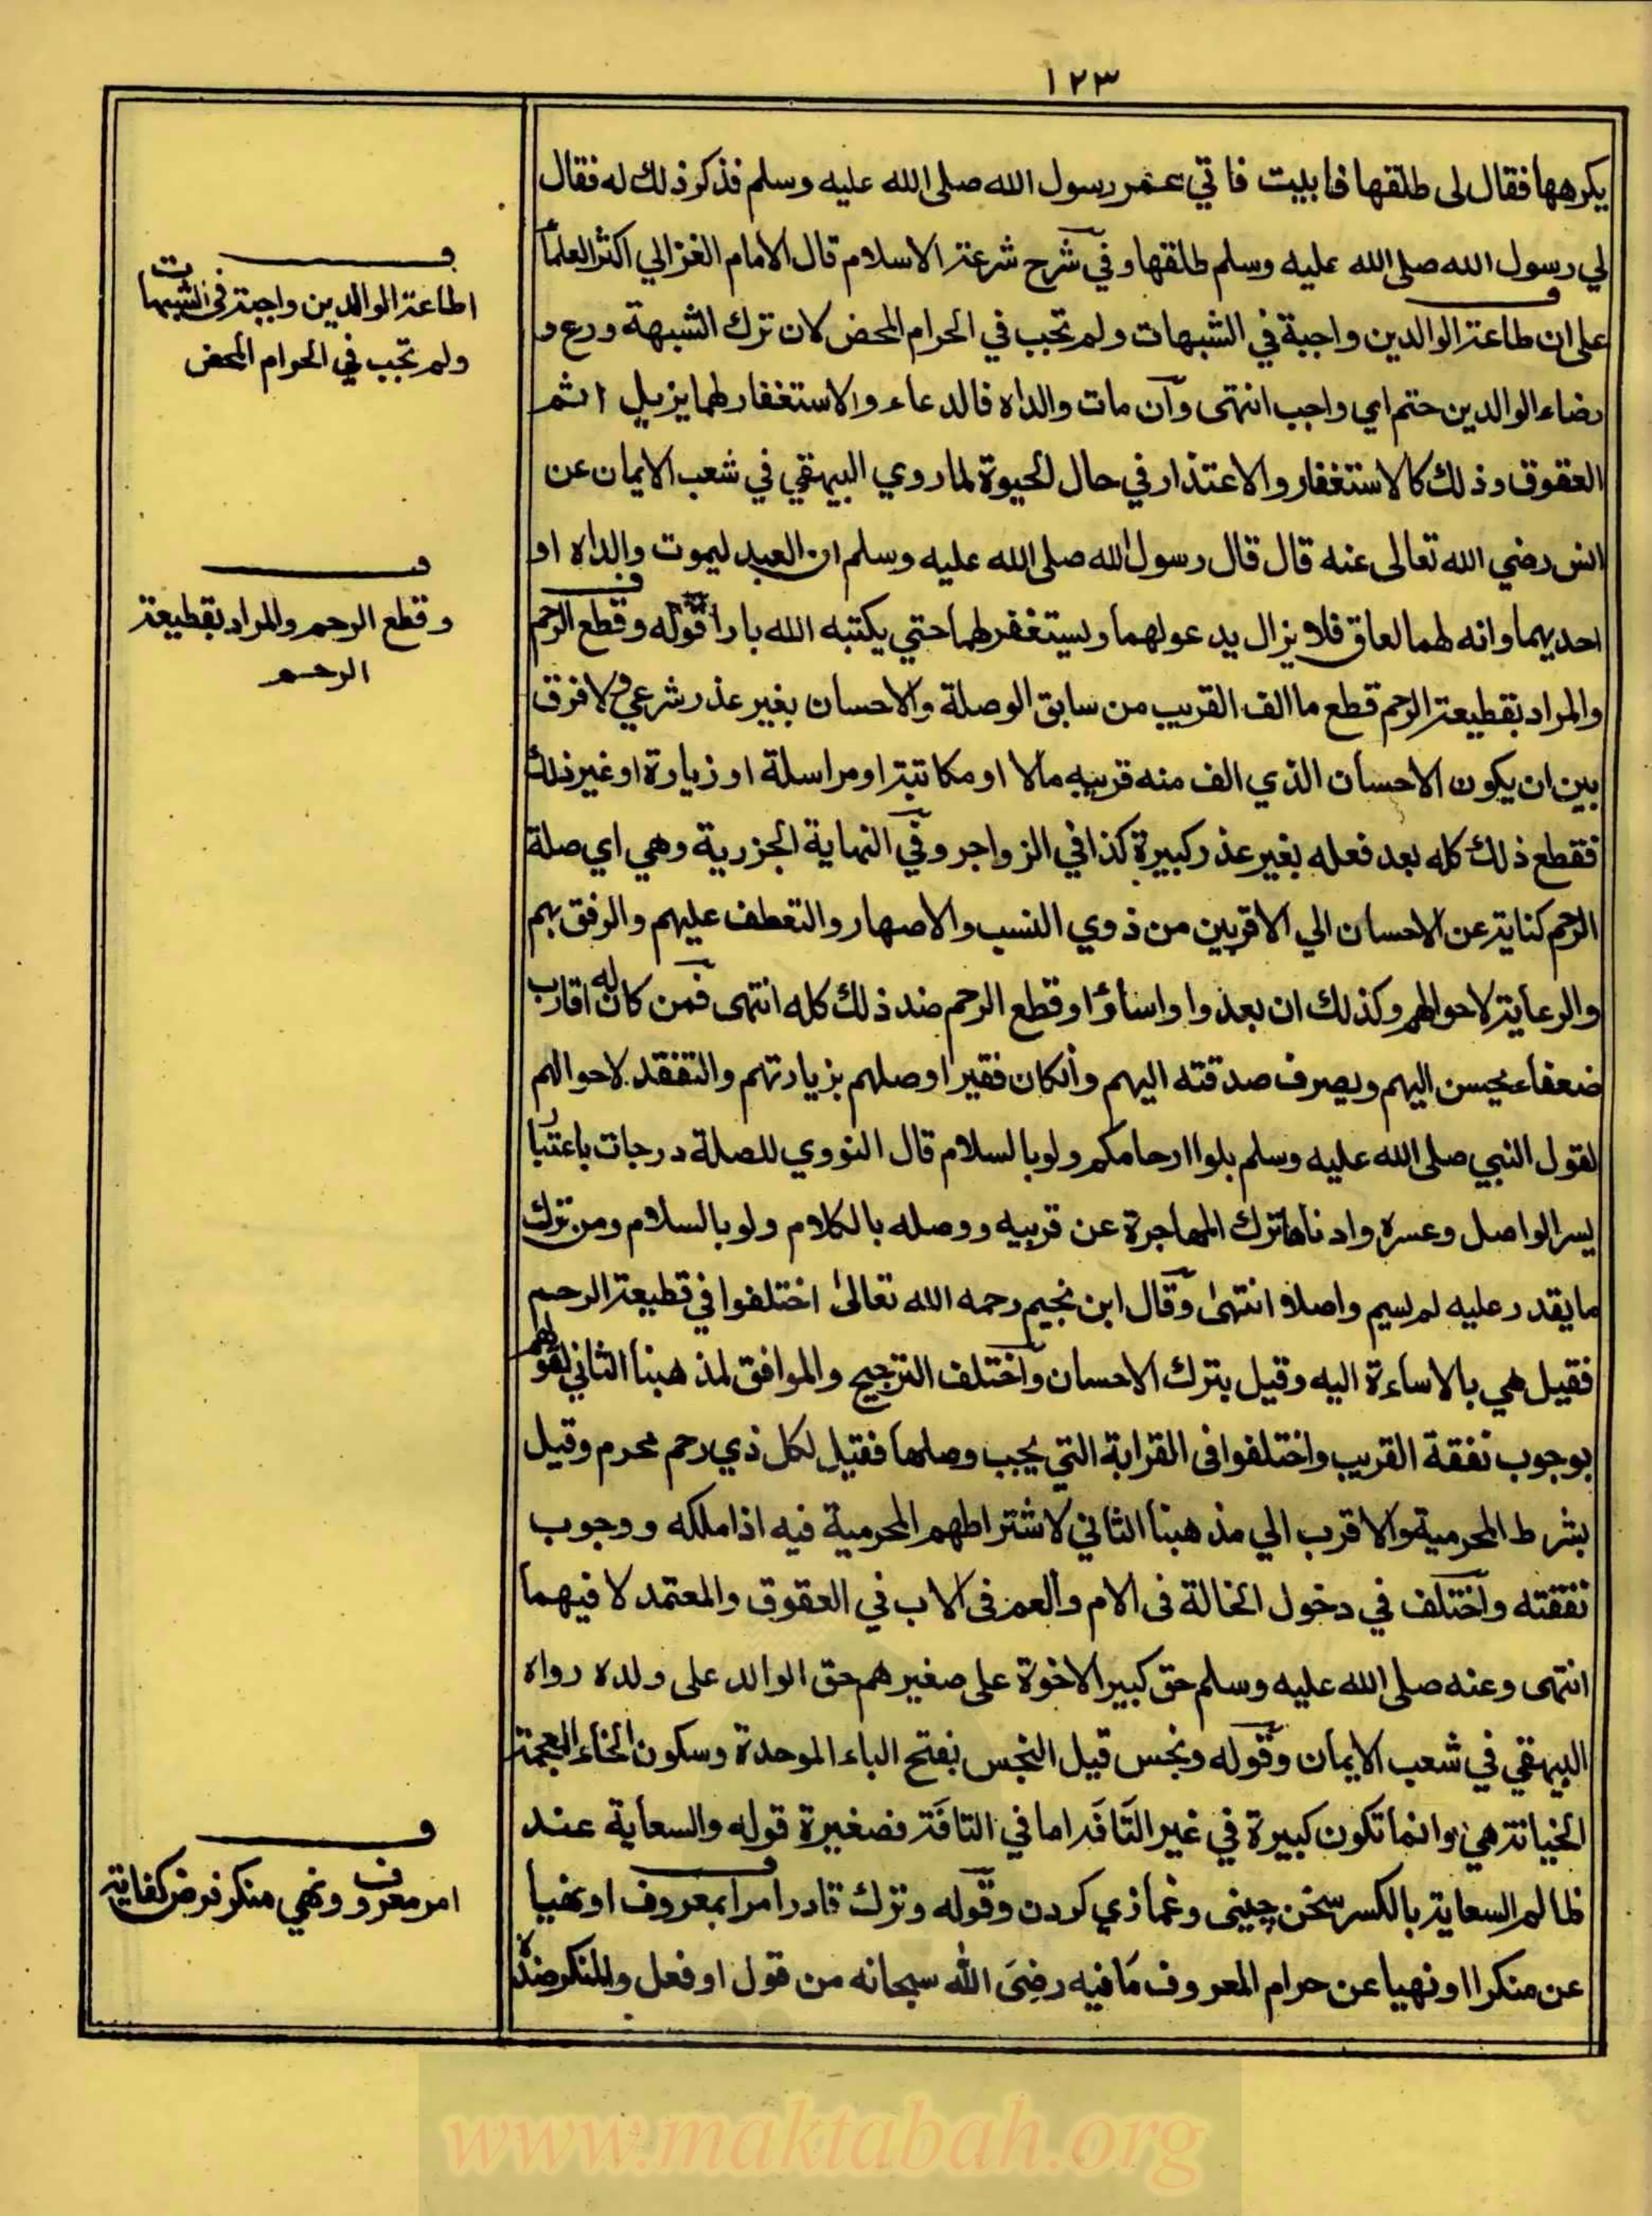 ١٢٣
يكرهها فقال لى طلقها فابليت فاتي عمر رسول الله صلى الله عليه وسلم فذكر ذلك له فقال
لي رسول الله صلى الله عليه وسلم طلقها وفي شرح شرعة الاسلام قال الامام الغزالي اكثر العلماً
على ان طاعة الوالدين واجبة في الشبهات ولم تجب في الحرام المحض لان ترك الشبهة ورع و
رضاء الوالدين حتم اي واجب انتهى وآن مات والداه فالدعاء والاستغفار لهما يزيل اثم
العقوق وذلك كالاستغفار والاعتذار في حال الحيوة لما روي البيهقي في شعب الايمان عن
انس رضي الله تعالى عنه قال قال رسول الله صلى الله عليه وسلم ان العبد ليموت والداه او
احديهما وانه لهما لعاق فلا يزال يدعو لهما ويستغفر لهما حتي يكتبه الله بارا قوله وقطع الرحم
والمراد بقطيعة الرحم قطع ما الف القريب من سابق الوصلة والاحسان بغير عذر شرعي ولا فرق
بين ان يكون الاحسان الذي الف منه قريبه مالا او مكاتبة او مراسلة او زيارة او غير ذلك
فقطع ذلك كله بعد فعله بغير عذر كبيرة كذا في الزواجر وفي النهاية الجزرية وهي اي صلة
الرحم كناية عن الاحسان الي الاقربين من ذوي النسب والاصهار والتعطف عليهم والرفق بهم
والرعاية لاحوالهم وكذلك ان بعدوا واساؤا وقطع الرحم ضد ذلك كله انتهى فمن كان له اقارب
ضعفاء يحسن اليهم ويصرف صدقته اليهم وانكان فقيرا وصلهم بزيارتهم والتفقد لاحوالهم
لقول النبي صلى الله عليه وسلم بلوا ارحامكم ولو بالسلام قال النووي للصلة درجات باعتبار
يسر الواصل وعسره وادناها ترك المهاجرة عن قريبه ووصله بالكلام ولو بالسلام ومن ترك
ما يقدر عليه لم يسم واصلا انتهىٰ وقال ابن نجيم رحمه الله تعالىٰ اختلفوا في قطيعة الرحم
فقيل هي بالاساءة اليه وقيل بترك الاحسان واختلف الترجيح والموافق لمذهبنا الثاني لقولهم
بوجوب نفقة القريب واختلفوا فى القرابة التي يجب وصلها فقيل لكل ذي رحم محرم وقيل
بشرط المحرمية والاقرب الي مذهبنا الثاني لاشتراطهم المحرمية فيه اذا ملكه ووجوب
نفقته واختلف في دخول الخالة فى الام والعم فى الاب في العقوق والمعتمد لا فيهما
انتهى وعنه صلى الله عليه وسلم حق كبير الاخوة على صغيرهم حق الوالد على ولده رواه
البيهقي في شعب الايمان وقوله وبخس قيل البخس بفتح الباء الموحدة وسكون الخاء المعجمة
الخيانة هي وانما تكون كبيرة في غير التافه اما في التافه فصغيرة قوله والسعاية عند
ظالم السعاية بالكسر سخن چينى وغمازي كردن وقوله وترك قادر امرا بمعروف او نهيا
عن منكر او نهيا عن حرام المعروف مَا فيه رضِىَ الله سبحانه من قول او فعل والمنكر ضده
ف
اطاعة الوالدين واجبة في الشبهات
ولم تجب في الحرام المحض
ف
وقطع الرحم والمراد بقطيعة
الرحم
ف
امر معروف ونهي منكر فرض كفاية
www.maktabah.org